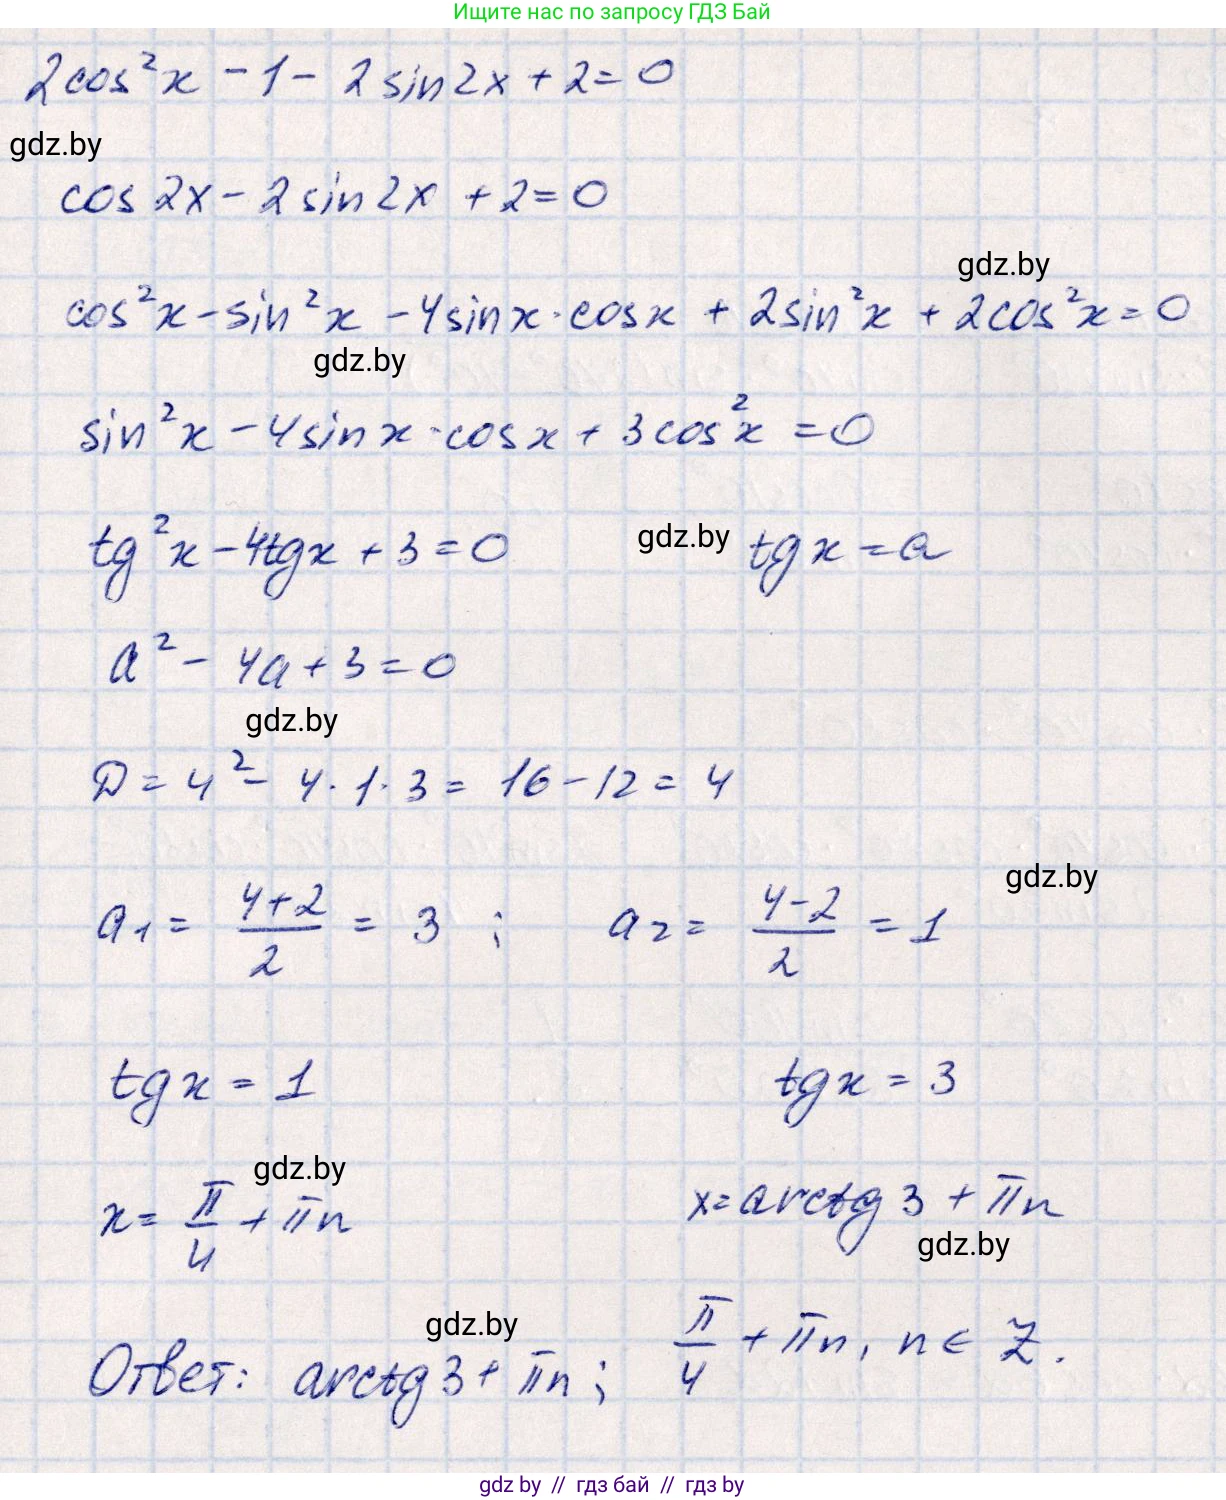 Ищите нас по запросу ГДЗ Бай
2cos²x - 1 - 2sin2x + 2 = 0
gdz.by
cos2x - 2sin2x + 2 = 0
gdz.by
cos²x - sin²x - 4sinx·cosx + 2sin²x + 2cos²x = 0
gdz.by
sin²x - 4sinx·cosx + 3cos²x = 0
tg²x - 4tgx + 3 = 0 gdz.by tgx = a
a² - 4a + 3 = 0
gdz.by
D = 4² - 4·1·3 = 16 - 12 = 4
gdz.by
a₁ = (4+2)/2 = 3 ; a₂ = (4-2)/2 = 1
tgx = 1 tgx = 3
gdz.by
x = π/4 + πn x = arctg3 + πn
gdz.by
gdz.by
Ответ: arctg3 + πn ; π/4 + πn, n ∈ Z.
gdz by // гдз бай // гдз by